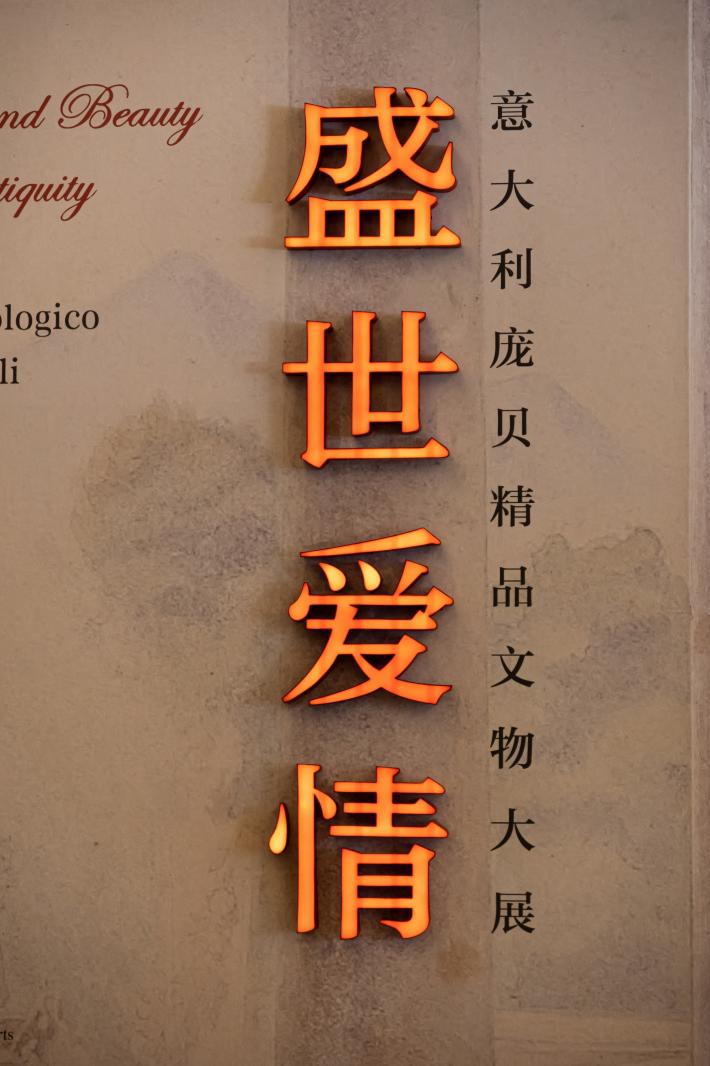 意大利庞贝精品文物大展
盛世爱情
nd Beauty
tiquity
ologico
li
rts